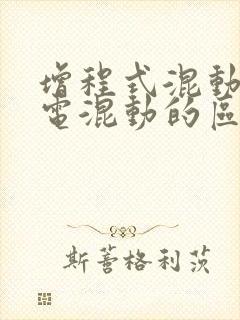 增程式混動
電混動的區
斯蓍格利茨